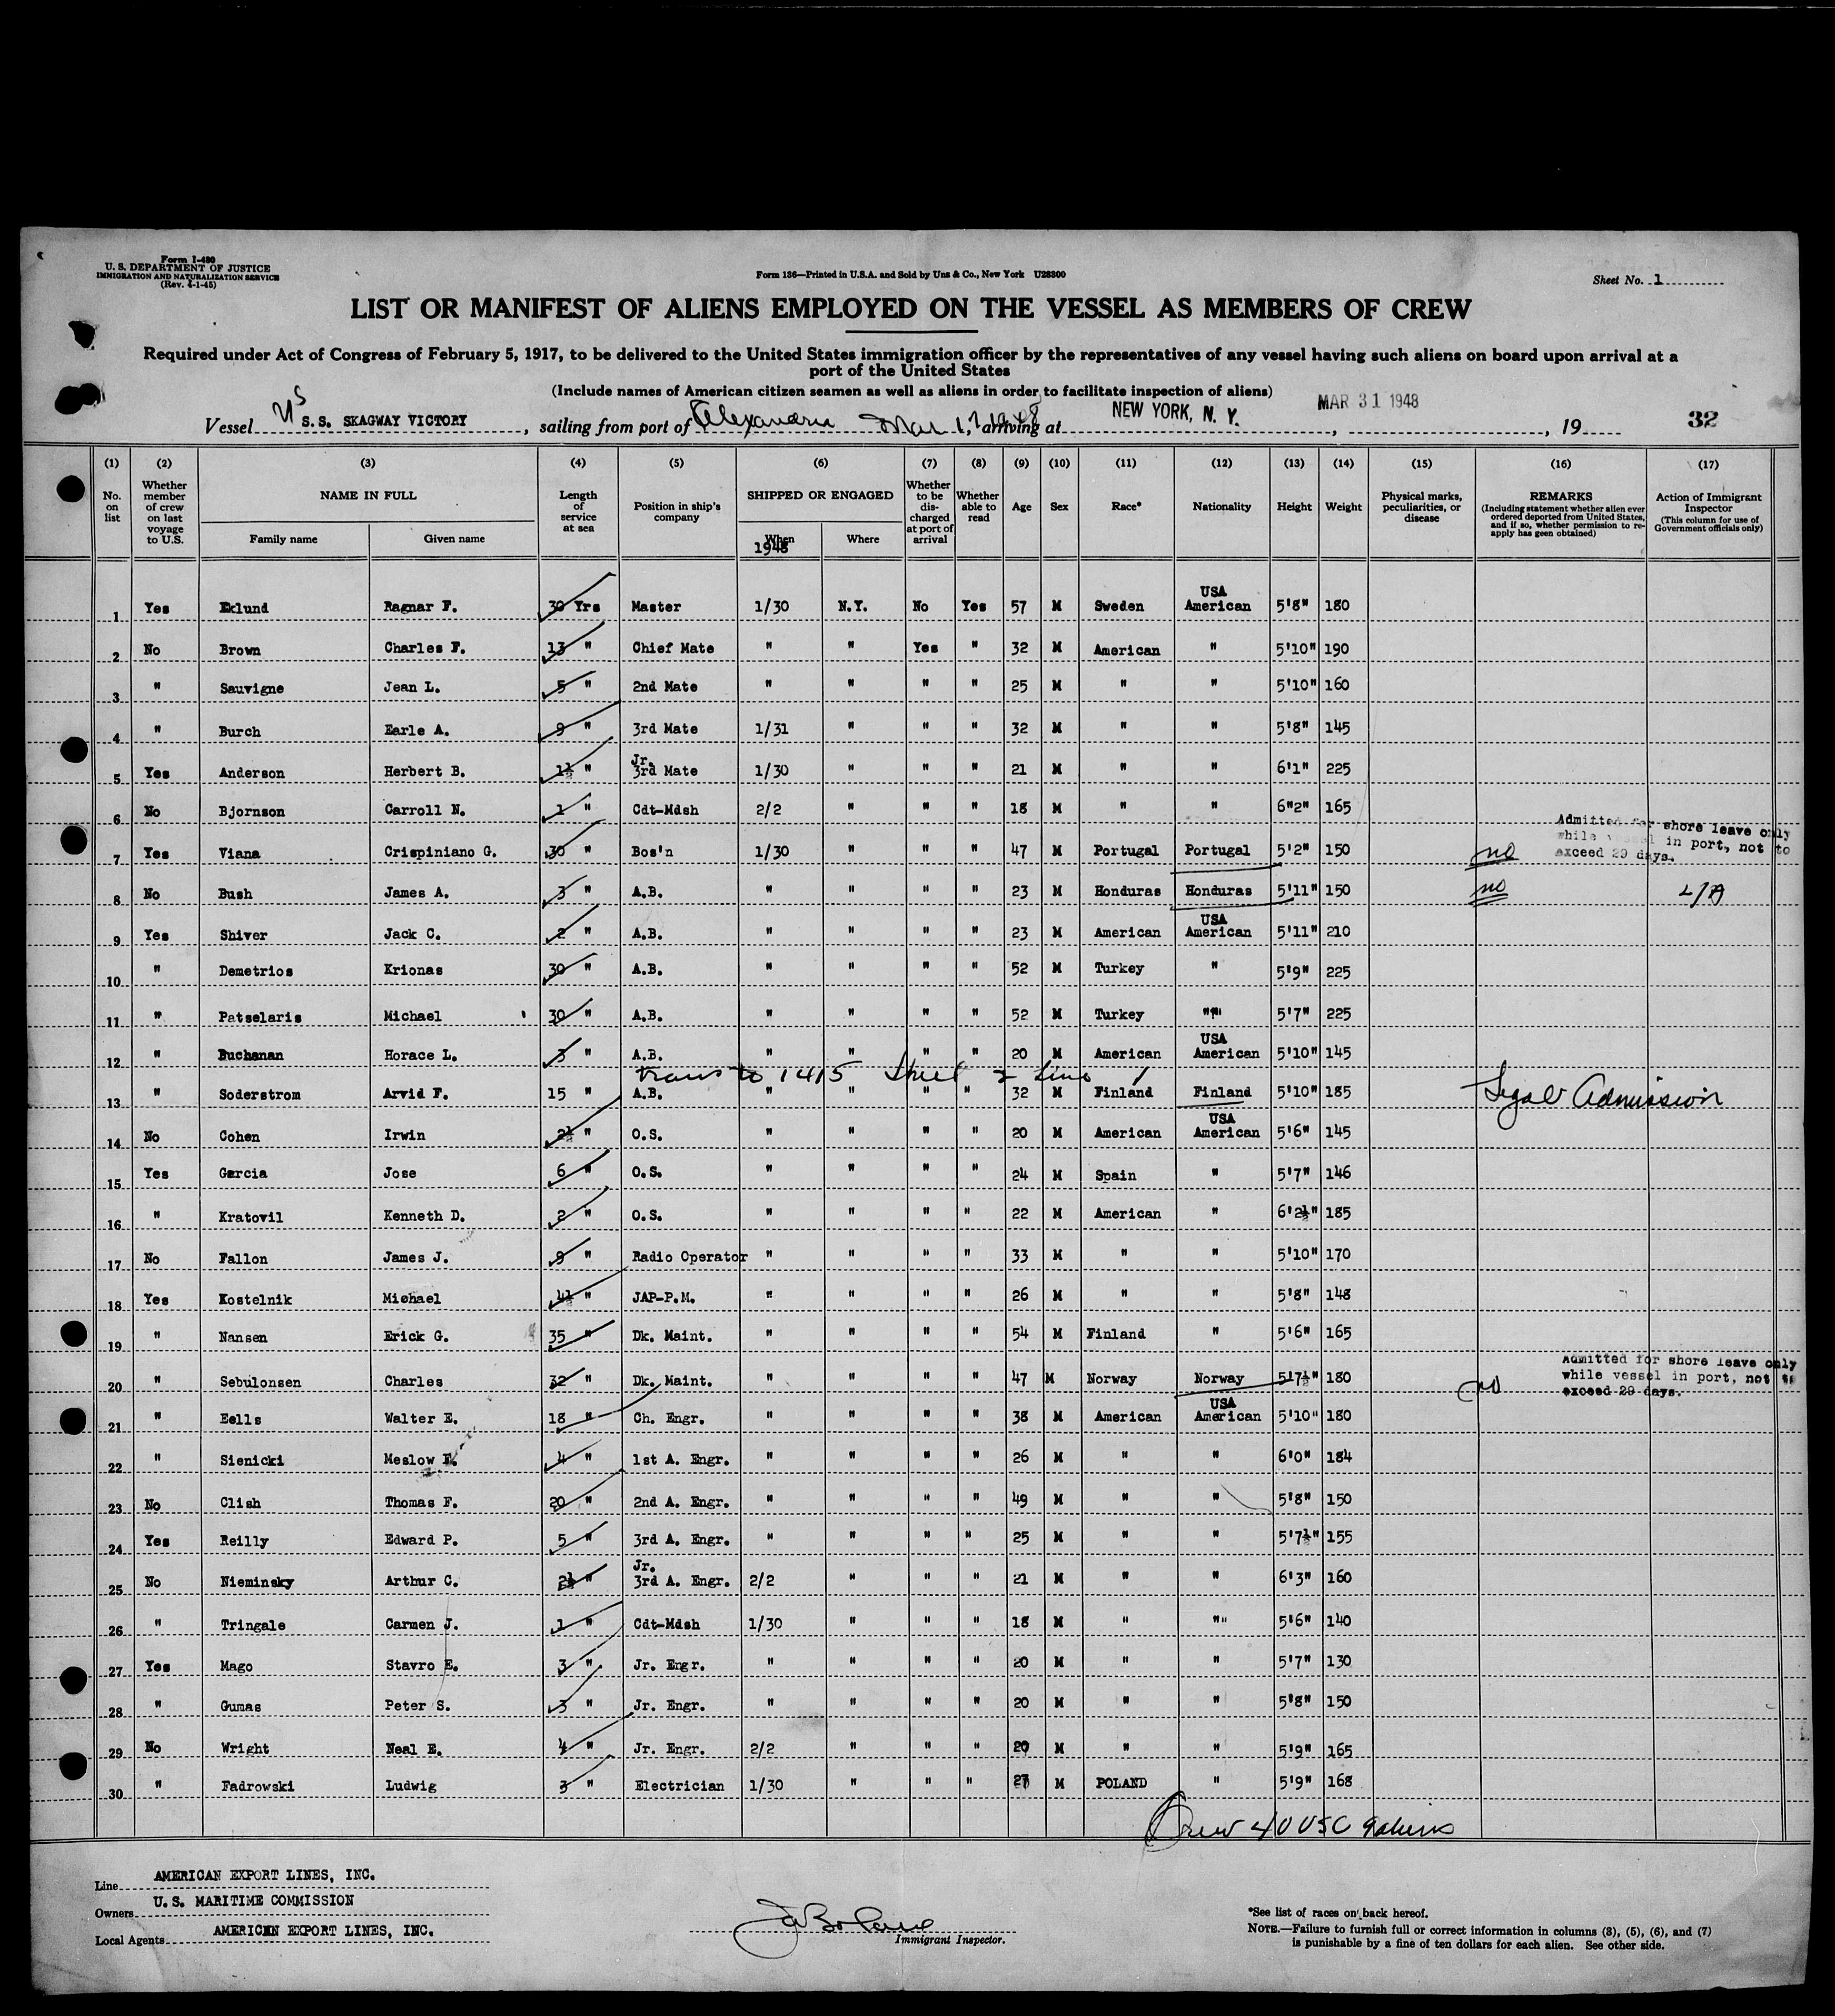 Form I-480
U. S. DEPARTMENT OF JUSTICE
IMMIGRATION AND NATURALIZATION SERVICE
(Rev. 4-1-45)
Form 136—Printed in U.S.A. and Sold by Unz & Co., New York U28300
Sheet No. 1
LIST OR MANIFEST OF ALIENS EMPLOYED ON THE VESSEL AS MEMBERS OF CREW
Required under Act of Congress of February 5, 1917, to be delivered to the United States immigration officer by the representatives of any vessel having such aliens on board upon arrival at a
port of the United States
(Include names of American citizen seamen as well as aliens in order to facilitate inspection of aliens)
MAR 31 1948
Vessel US S.S. SKAGWAY VICTORY, sailing from port of Alexandria Mar 17, 1948 arriving at NEW YORK, N. Y., 19 32
(1) (2) (3) (4) (5) (6) (7) (8) (9) (10) (11) (12) (13) (14) (15) (16) (17)
No. on list Whether member of crew on last voyage to U.S. NAME IN FULL Family name Given name Length of service at sea Position in ship's company SHIPPED OR ENGAGED When 1948 Where Whether to be discharged at port of arrival Whether able to read Age Sex Race* Nationality Height Weight Physical marks, peculiarities, or disease REMARKS (Including statement whether alien ever ordered deported from United States, and if so, whether permission to re-apply has geen obtained) Action of Immigrant Inspector (This column for use of Government officials only)
1 Yes Eklund Ragnar F. 30 Yrs Master 1/30 N.Y. No Yes 57 M Sweden USA American 5'8" 180
2 No Brown Charles F. 13 " Chief Mate " " Yes " 32 M American " 5'10" 190
3 " Sauvigne Jean L. 5 " 2nd Mate " " " " 25 M " " 5'10" 160
4 " Burch Earle A. 9 " 3rd Mate 1/31 " " " 32 M " " 5'8" 145
5 Yes Anderson Herbert B. 1½ " Jr. 3rd Mate 1/30 " " " 21 M " " 6'1" 225
6 No Bjornson Carroll N. 1 " Cdt-Mdsh 2/2 " " " 18 M " " 6"2" 165
7 Yes Viana Crispiniano G. 30 " Bos'n 1/30 " " " 47 M Portugal Portugal 5'2" 150 no Admitted for shore leave only while vessel in port, not to exceed 29 days.
8 No Bush James A. 3 " A.B. " " " " 23 M Honduras Honduras 5'11" 150 no
9 Yes Shiver Jack C. 2 " A.B. " " " " 23 M American USA American 5'11" 210
10 " Demetrios Krionas 30 " A.B. " " " " 52 M Turkey " 5'9" 225
11 " Patselaris Michael 30 " A.B. " " " " 52 M Turkey " 5'7" 225
12 " Buchanan Horace L. 3 " A.B. " " " " 20 M American USA American 5'10" 145
trans to 1415 Sheet 2 Line 1
13 " Soderstrom Arvid F. 15 " A.B. " " " " 32 M Finland Finland 5'10" 185 Legal Admission
14 No Cohen Irwin 2½ " O.S. " " " " 20 M American USA American 5'6" 145
15 Yes Garcia Jose 6 " O.S. " " " " 24 M Spain " 5'7" 146
16 " Kratovil Kenneth D. 2 " O.S. " " " " 22 M American " 6'2½" 185
17 No Fallon James J. 9 " Radio Operator " " " " 33 M " " 5'10" 170
18 Yes Kostelnik Michael 4½ " JAP-P.M. " " " " 26 M " " 5'8" 148
19 " Nansen Erick G. 35 " Dk. Maint. " " " " 54 M Finland " 5'6" 165
20 " Sebulonsen Charles 32 " Dk. Maint. " " " " 47 M Norway Norway 5'7½" 180 no Admitted for shore leave only while vessel in port, not to exceed 29 days.
21 " Eells Walter E. 18 " Ch. Engr. " " " " 38 M American USA American 5'10" 180
22 " Sienicki Meslow E. 4 " 1st A. Engr. " " " " 26 M " " 6'0" 184
23 No Clish Thomas F. 20 " 2nd A. Engr. " " " " 49 M " " 5'8" 150
24 Yes Reilly Edward P. 5 " 3rd A. Engr. " " " " 25 M " " 5'7½" 155
25 No Nieminsky Arthur C. 2½ " Jr. 3rd A. Engr. 2/2 " " " 21 M " " 6'3" 160
26 " Tringale Carmen J. 1 " Cdt-Mdsh 1/30 " " " 18 M " " 5'6" 140
27 Yes Mago Stavro E. 3 " Jr. Engr. " " " " 20 M " " 5'7" 130
28 " Gumas Peter S. 3 " Jr. Engr. " " " " 20 M " " 5'8" 150
29 No Wright Neal E. 4 " Jr. Engr. 2/2 " " " 20 M " " 5'9" 165
30 " Fadrowski Ludwig 3 " Electrician 1/30 " " " 27 M POLAND " 5'9" 168
Crew 40 USC 9 aliens
Line AMERICAN EXPORT LINES, INC.
Owners U. S. MARITIME COMMISSION
Local Agents AMERICAN EXPORT LINES, INC.
Immigrant Inspector.
*See list of races on back hereof.
NOTE.—Failure to furnish full or correct information in columns (3), (5), (6), and (7)
is punishable by a fine of ten dollars for each alien. See other side.